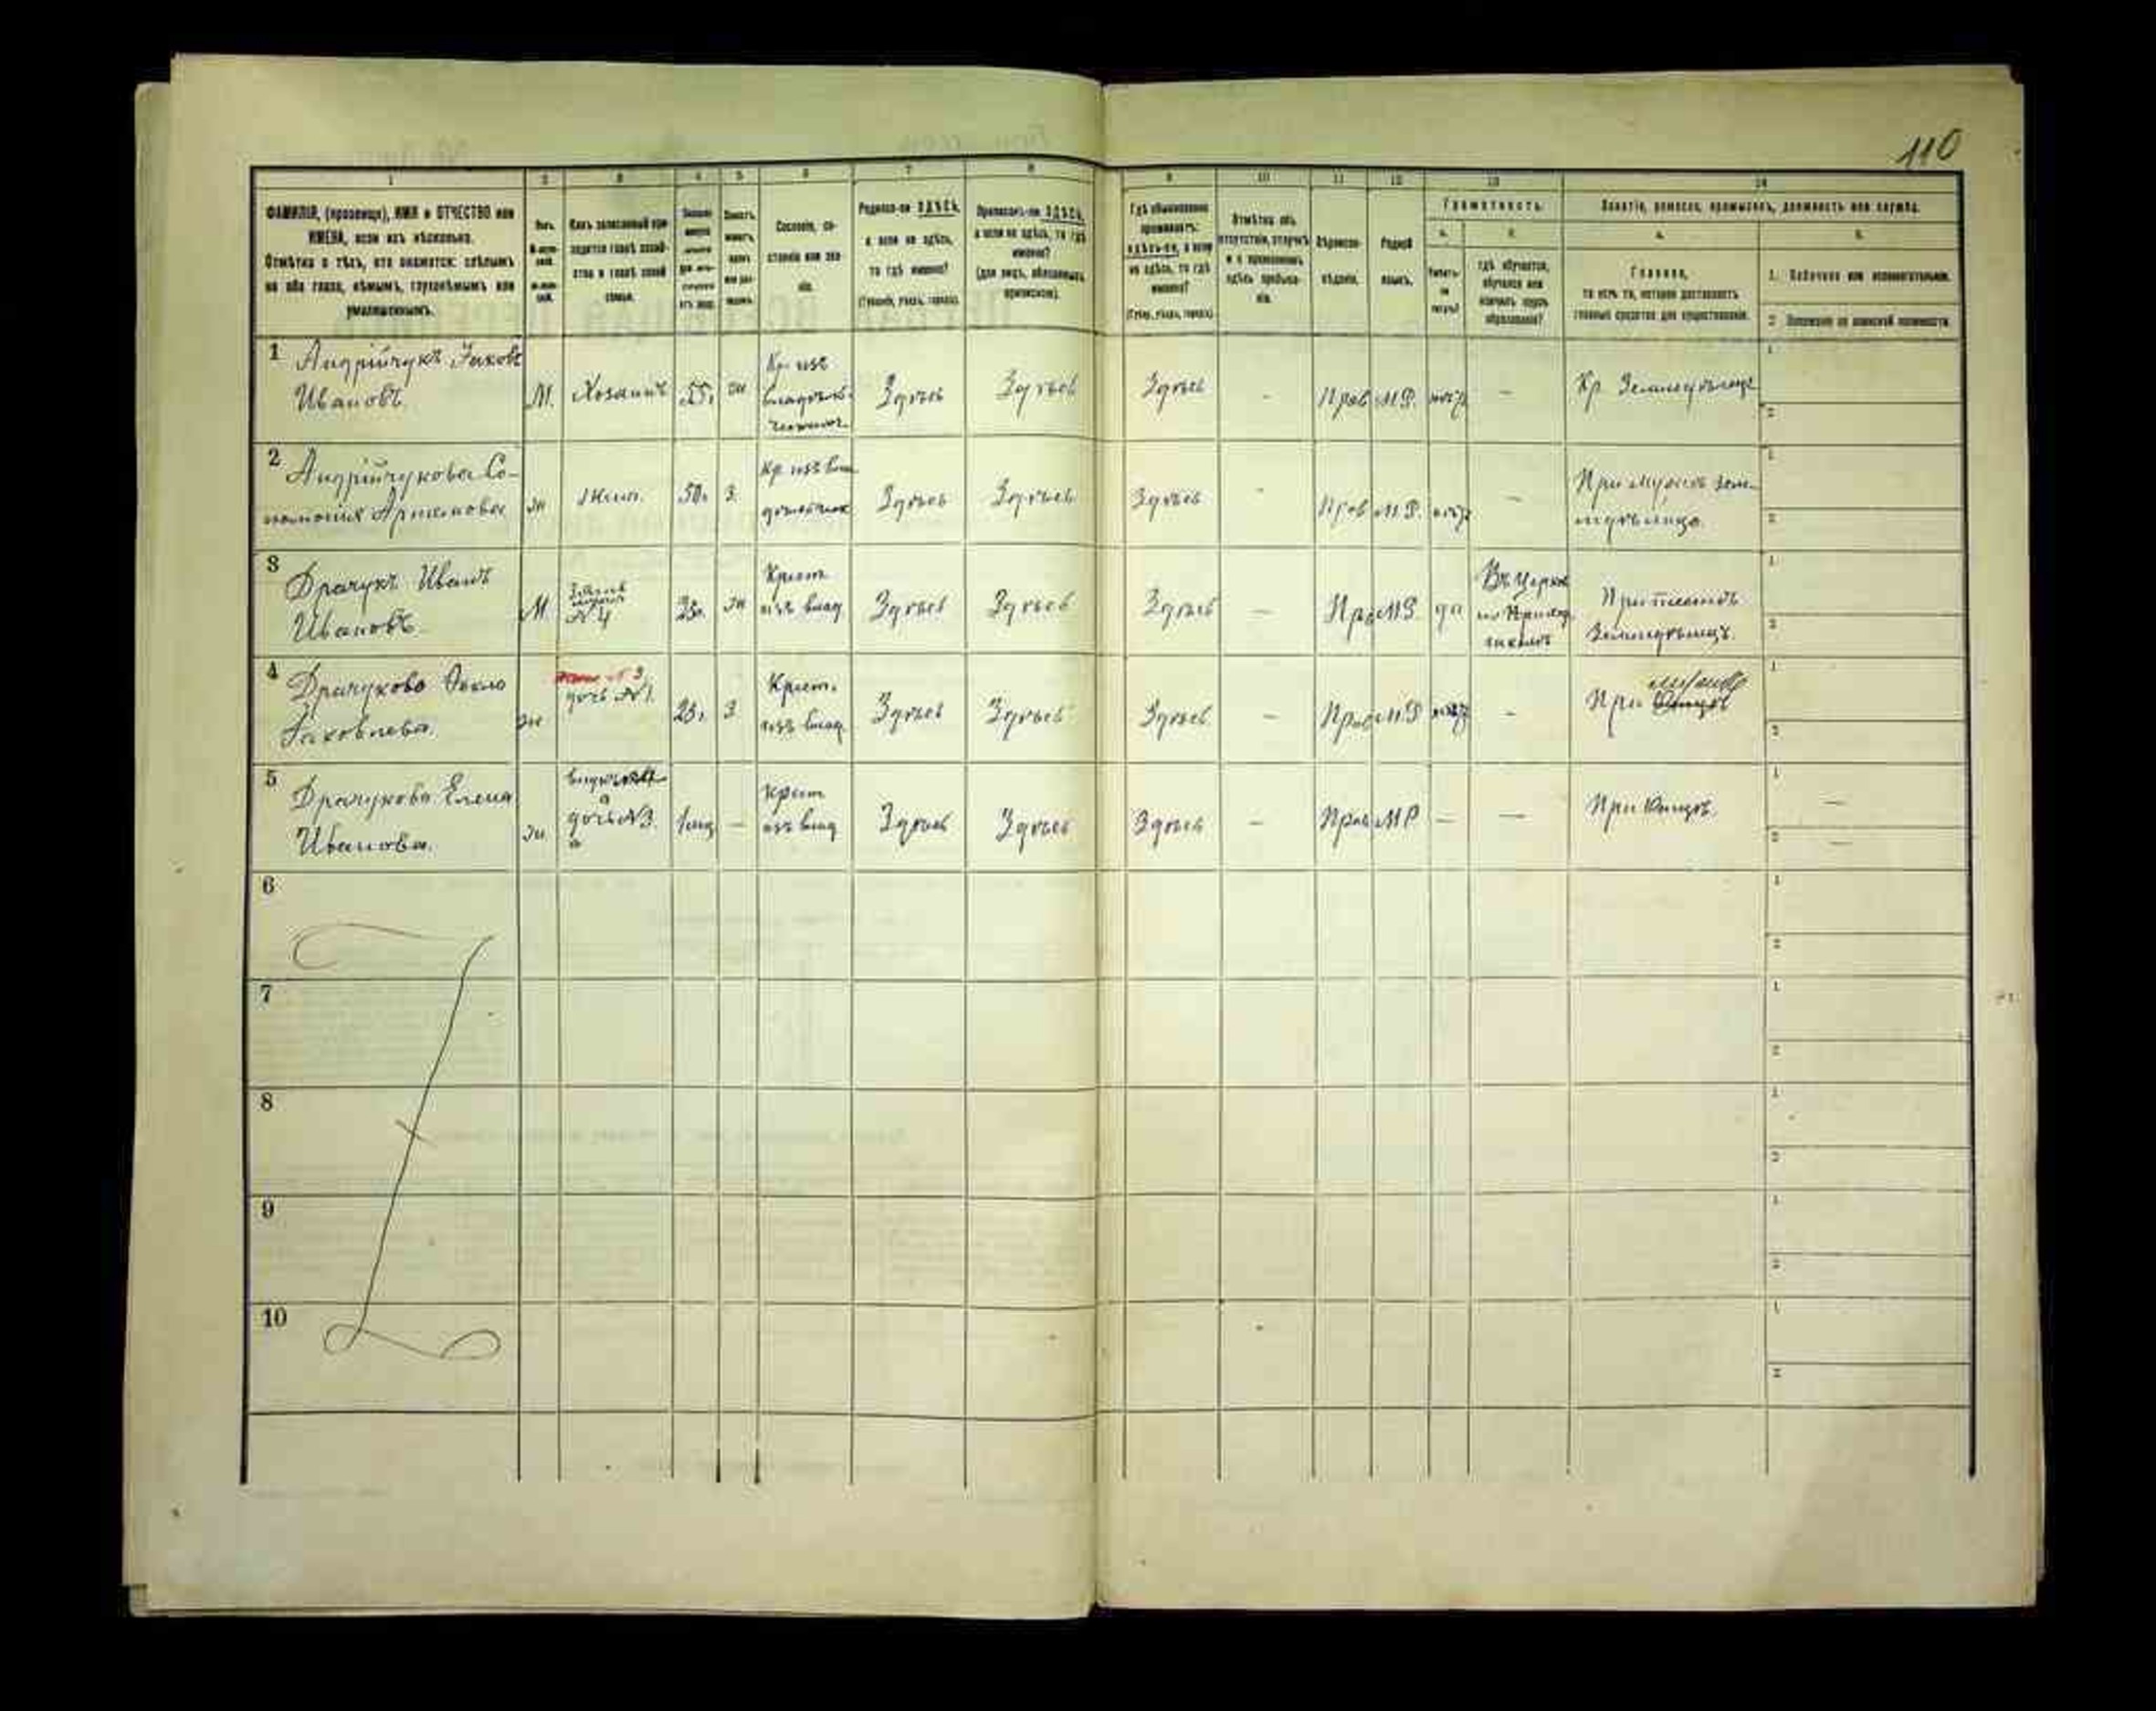 110
1 2 3 4 5 6 7 8 9 10 11 12 13 14
ФАМИЛІЯ, (прозвище), ИМЯ и ОТЧЕСТВО или
ИМЕНА, если ихъ нѣсколько.
Отмѣтка о тѣхъ, кто окажется: слѣпымъ
на оба глаза, нѣмымъ, глухонѣмымъ или
умалишеннымъ.
Полъ.
Какъ записанный при-
ходится главѣ хозяй-
ства и главѣ своей
семьи.
Сословіе, со-
стояніе или зва-
ніе.
Родился-ли ЗДѢСЬ,
а если не здѣсь,
то гдѣ именно?
(Губернія, уѣздъ, городъ).
Приписанъ-ли ЗДѢСЬ,
а если не здѣсь, то гдѣ
именно?
(для лицъ, обязанныхъ
припискою).
Гдѣ обыкновенно
проживаетъ:
здѣсь-ли, а если
не здѣсь, то гдѣ
именно?
(Губер., уѣздъ, городъ).
Отмѣтка объ
отсутствіи, отлучкѣ
и о временномъ
здѣсь пребыва-
ніи.
Вѣроиспо-
вѣданіе.
Родной
языкъ.
Грамотность.
а. б.
Умѣетъ-
ли
читать?
гдѣ обучается,
обучался или
кончилъ курсъ
образованія?
Занятіе, ремесло, промыселъ, должность или служба.
а. б.
Главное,
то есть то, которое доставляетъ
главныя средства для существованія.
1. Побочное или вспомогательное.
2. Положеніе по воинской повинности.
1 Андрійчукъ Яковъ
Ивановъ
М. Хозяинъ 55. Кр. изъ
Здѣсь Здѣсь Здѣсь - Прав М.Р. нѣтъ — Кр. Земледѣлецъ
2 Андрійчукова Со-
ломонія
ж жена. 50. З. Кр. изъ
Здѣсь Здѣсь Здѣсь - Прав М.Р. нѣтъ — При мужѣ зем-
ледѣльцѣ
3 Драчукъ Иванъ
Ивановъ
М №4 ж Крест.
изъ влад. Здѣсь Здѣсь Здѣсь — Пра МР. да Въ Церков
но Приход.
школѣ
При тестѣ
Земледѣлецъ.
4 Драчукова Ѳекла
Яковлева.
ж дочь №1. 23. З Крест.
изъ влад. Здѣсь Здѣсь Здѣсь — Прав М.Р нѣтъ - При мужѣ
5 Драчукова Елена
Иванова.
ж дочь №3. — Крест
изъ влад Здѣсь Здѣсь Здѣсь — Прав МР — — При Отцѣ.
6
7
8
9
10